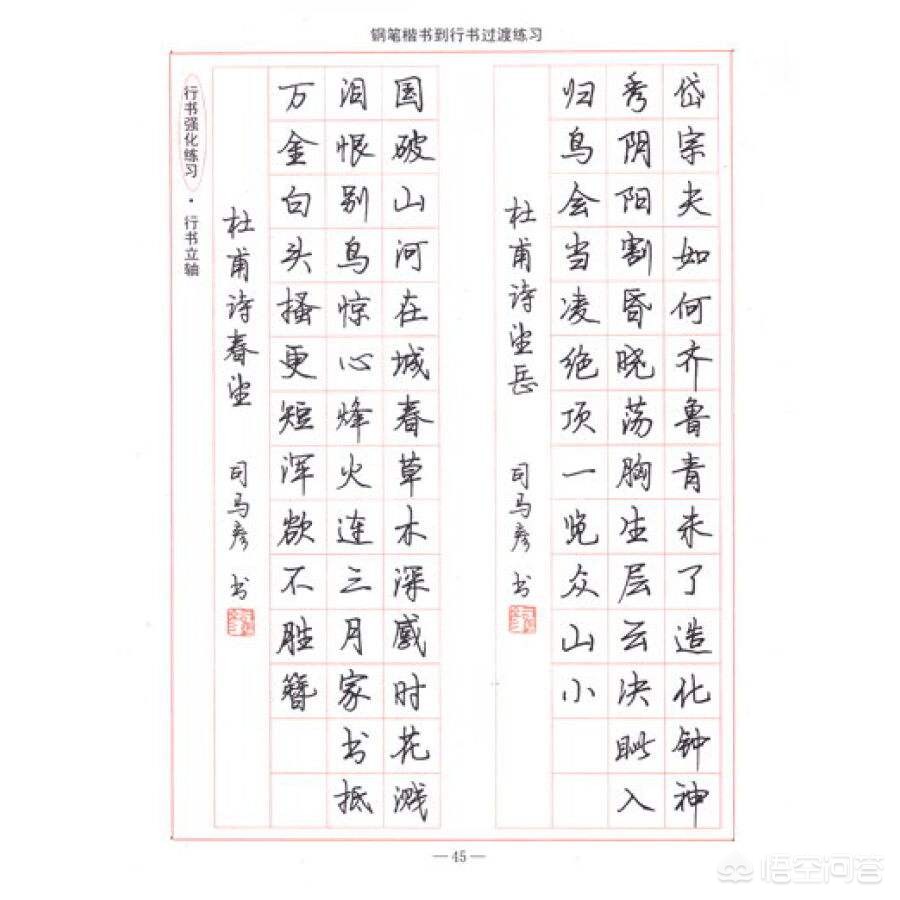 钢笔楷书到行书过渡练习
岱宗夫如何齐鲁青未了造化钟神
秀阴阳割昏晓荡胸生层云决眦入
归鸟会当凌绝顶一览众山小
杜甫诗望岳 司马彦书
国破山河在城春草木深感时花溅
泪恨别鸟惊心烽火连三月家书抵
万金白头搔更短浑欲不胜簪
杜甫诗春望 司马彦书
行书强化练习·行书立轴
—45—
悟空问答